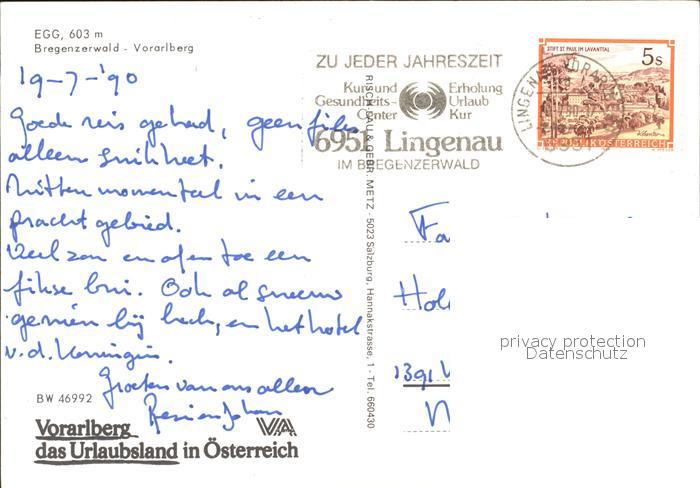 EGG, 603 m
Bregenzerwald - Vorarlberg
19-7-'90
Goede reis gehad, geen files
alleen snikheet.
Zitten momenteel in een
pracht gebied.
Veel zon en af en toe een
fikse bui. Ook al sneeuw
gezien bij Lech, en het hotel
v.d. Koningin.
Groeten van ons allen
BW 46992
Vorarlberg VA
das Urlaubsland in Österreich
RISCH-LAU & GEBR. METZ - 5023 Salzburg, Hannakstrasse, 1 - Tel. 660430
ZU JEDER JAHRESZEIT
Kur und
Gesundheits-
Center
Erholung
Urlaub
Kur
6951 Lingenau
IM BREGENZERWALD
STIFT ST. PAUL IM LAVANTTAL
5s
REPUBLIK ÖSTERREICH
Fa
Hol
1391
privacy protection
Datenschutz